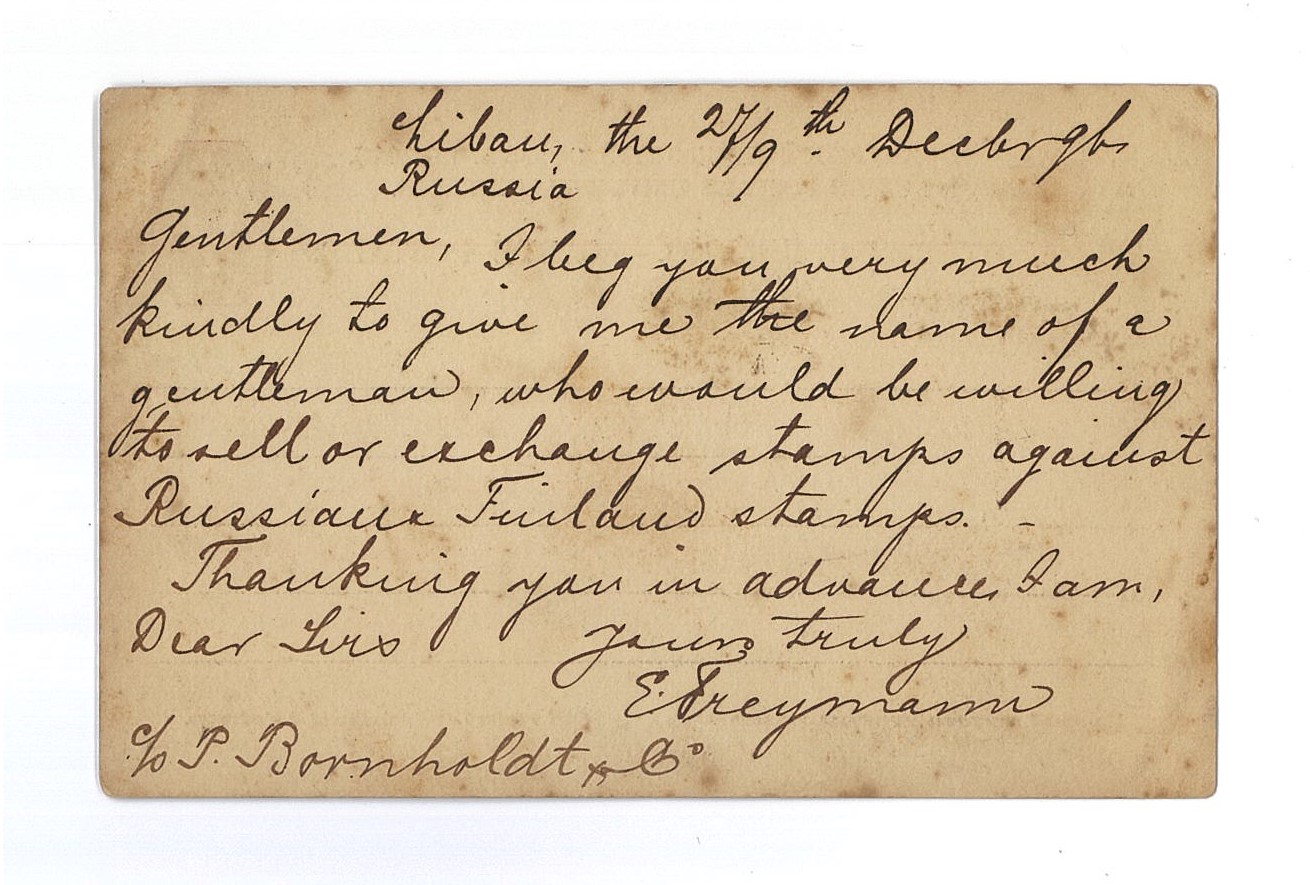 Libau, the 27/9th. Decbr 96.
Russia
Gentlemen, I beg you very much
kindly to give me the name of a
gentleman, who would be willing
to sell or exchange stamps against
Russian & Finland stamps. -
Thanking you in advance, I am,
Dear Sirs yours truly
E. Freymann
c/o P. Bornholdt & Co